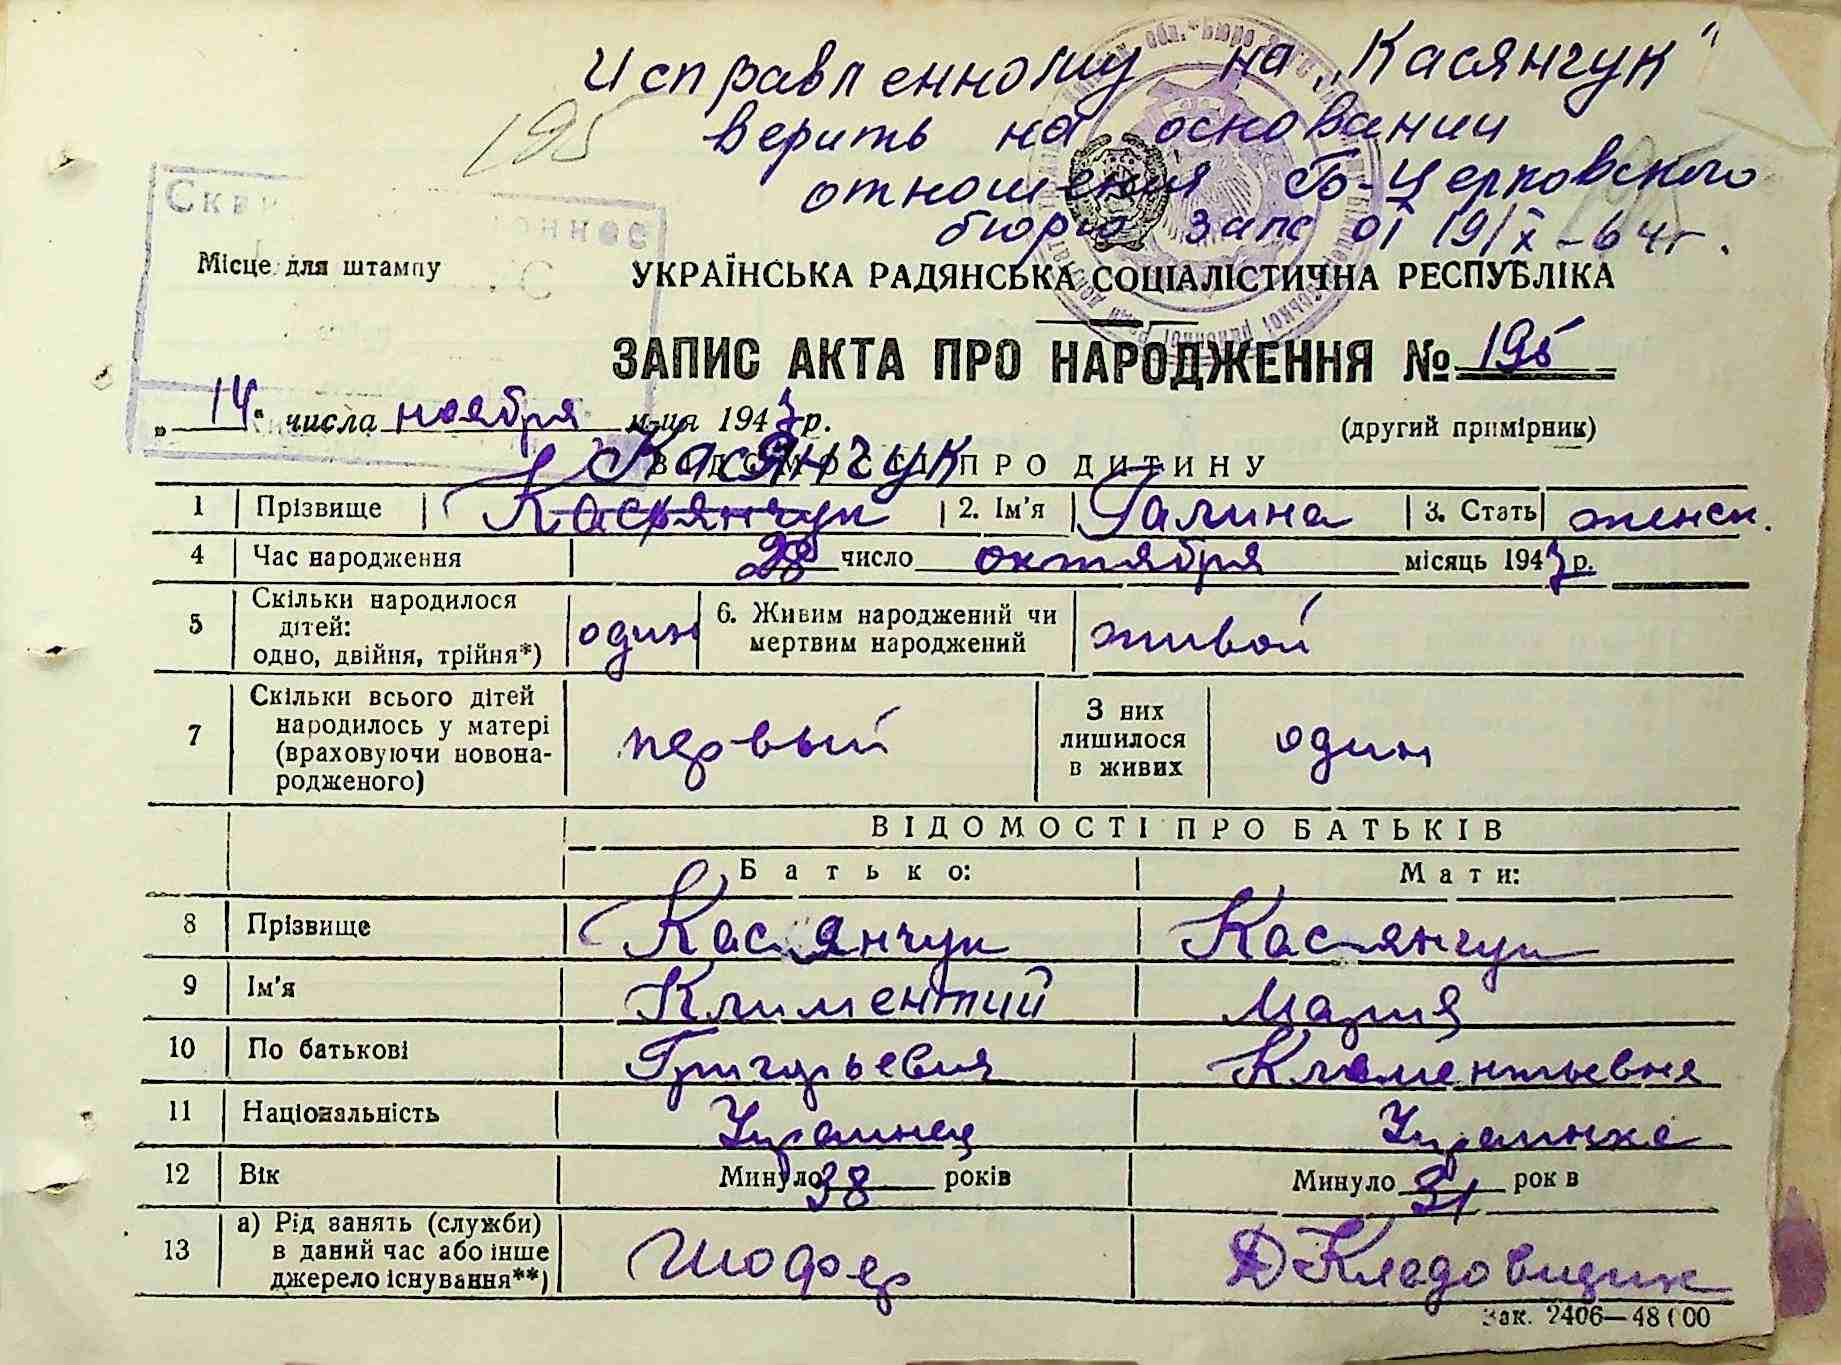 Исправленному на „Касянчук"
верить на основании
отношения Б-Церковского
бюро Запс от 19/X-64г.
195
Місце для штампу
УКРАЇНСЬКА РАДЯНСЬКА СОЦІАЛІСТИЧНА РЕСПУБЛІКА
ЗАПИС АКТА ПРО НАРОДЖЕННЯ № 195
„ 14 " числа ноября м-ця 1943 р.
(другий примірник)
Касянчук
ВІДОМОСТІ ПРО ДИТИНУ
1 Прізвище Касьянчук 2. Ім'я Галина 3. Стать женск.
4 Час народження 28 число октября місяць 1943 р.
5 Скільки народилося дітей: одно, двійня, трійня*) один 6. Живим народжений чи мертвим народжений живой
7 Скільки всього дітей народилось у матері (враховуючи новонародженого) первый З них лишилося в живих один
ВІДОМОСТІ ПРО БАТЬКІВ
Батько: Мати:
8 Прізвище Касянчук Касянчук
9 Ім'я Климентий Мария
10 По батькові Григорьевич Климентьевна
11 Національність Украинец Украинка
12 Вік Минуло 38 років Минуло 31 рок в
13 а) Рід занять (служби) в даний час або інше джерело існування**) Шофер Кладовщик
Зак. 2406—48 00